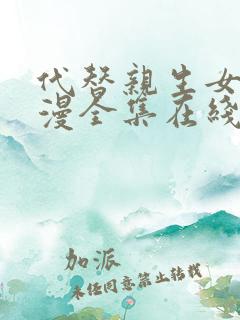 代替親生女
漫全集在綫
加派
未经同意禁止转载